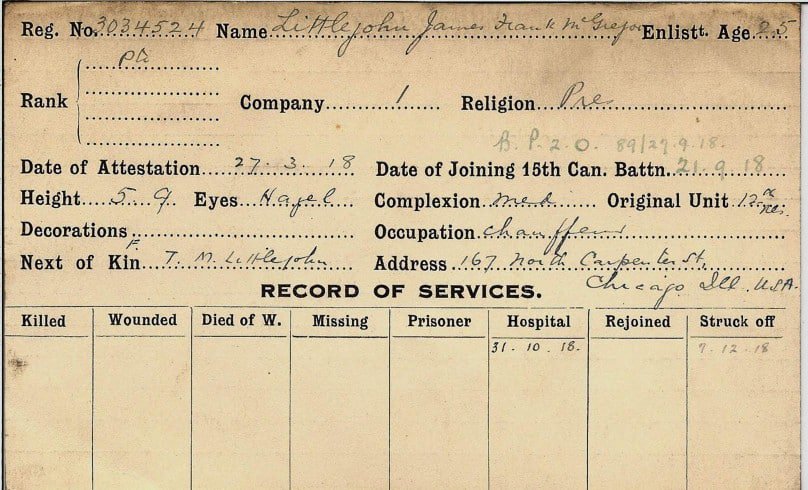 Reg. No. 3034524 Name Littlejohn James Frank McGregor Enlistt. Age 25
Pte
Rank Company 1 Religion Pre
B. P. 2. O. 89/27.9.18.
Date of Attestation 27. 3. 18 Date of Joining 15th Can. Battn. 21. 9. 18
Height 5. 9. Eyes Hazel Complexion med Original Unit 12th Res.
Decorations Occupation Chauffeur
F.
Next of Kin T. M. Littlejohn Address 167 North Carpenter St,
Chicago Ill. USA.
RECORD OF SERVICES.
Killed Wounded Died of W. Missing Prisoner Hospital Rejoined Struck off
31. 10. 18. 7. 12. 18